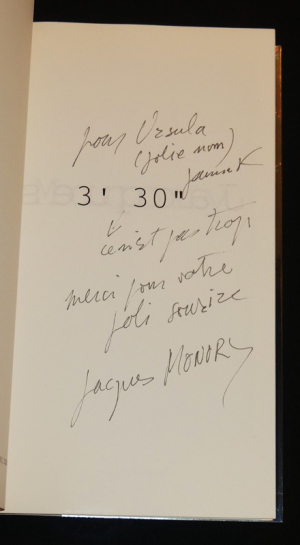 pour Ursula
(jolie nom)
3' 30"
ce n'est pas trop,
merci pour votre
joli sourire
Jacques MONORY